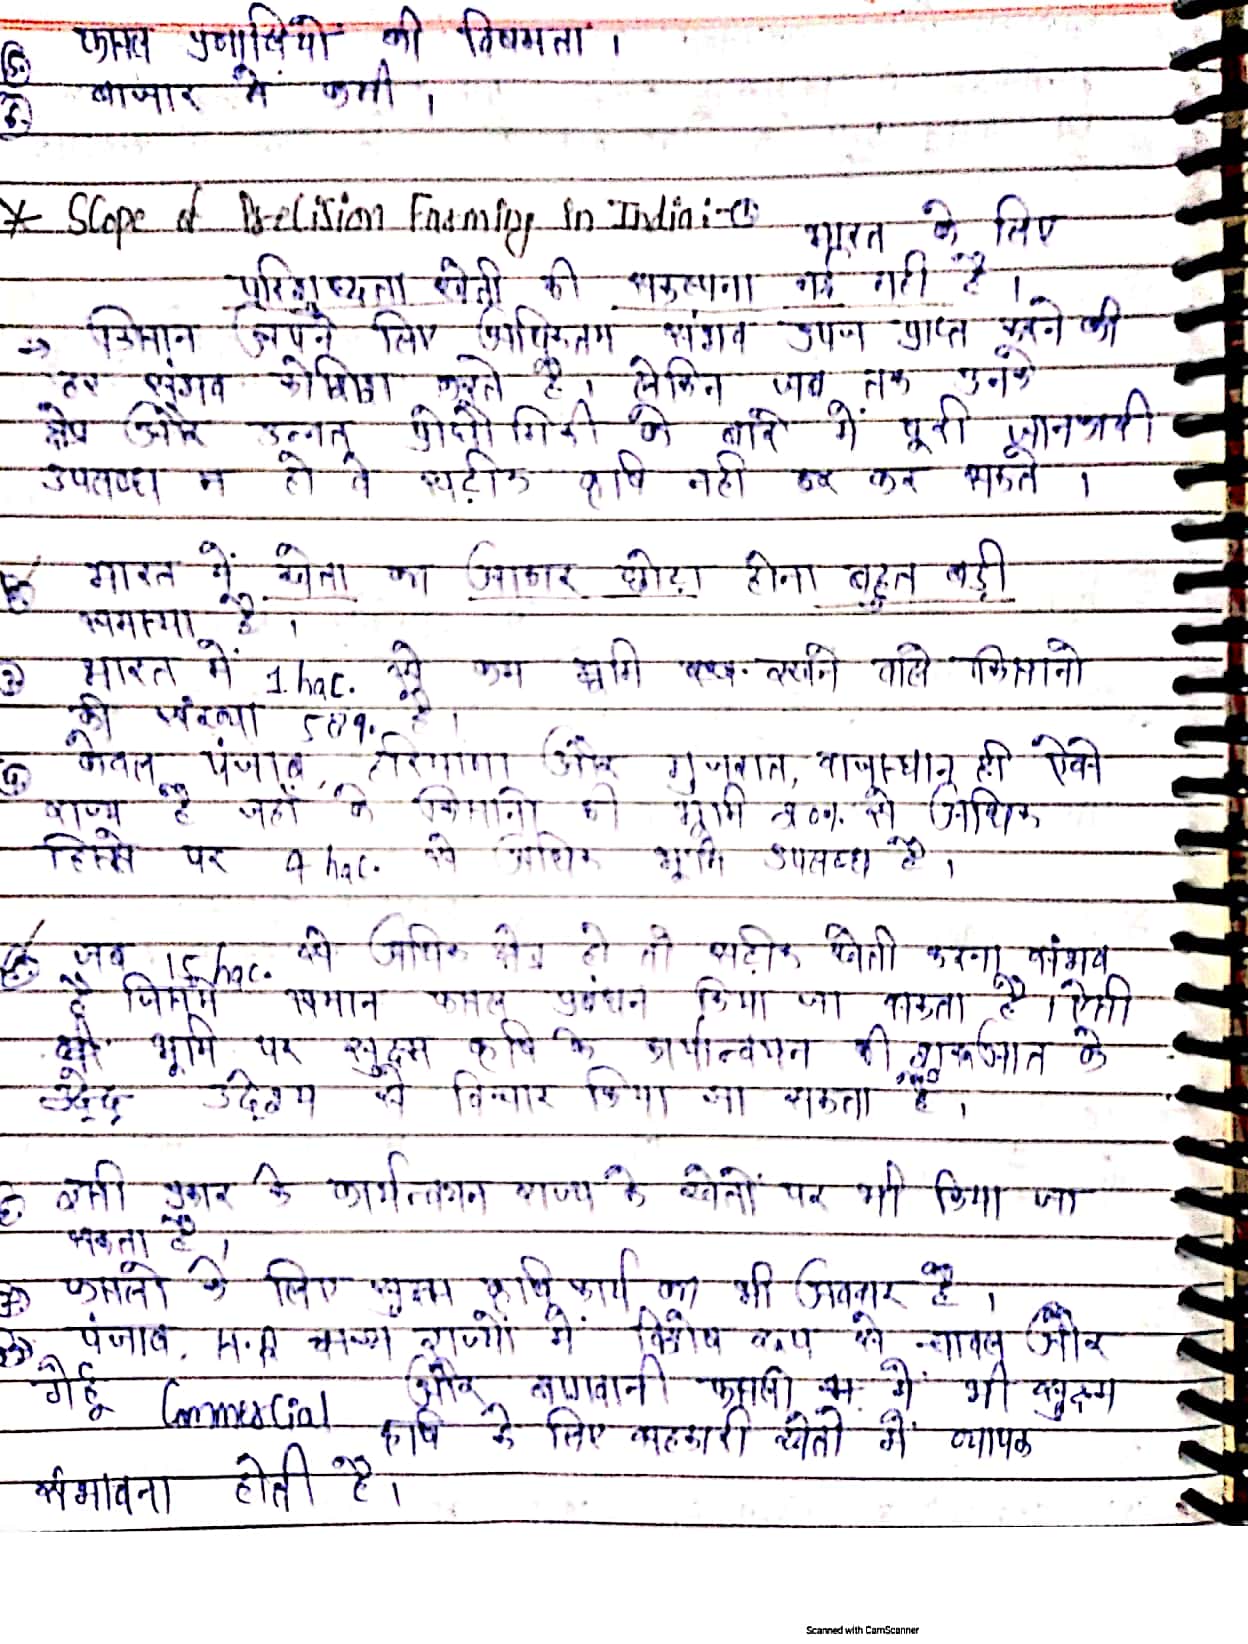 5. फसल प्रणालियों की विषमता ।
6. बाजार में कमी ।
* Scope of Precision Farming in India :- ① भारत के लिए
परिशुध्दता खेती की संकल्पना नई नहीं है ।
→ किसान अपने लिए अधिकतम संभव उपज प्राप्त करने की
हर संभव कोशिश करते है । लेकिन जब तक उनके
क्षेत्र और उन्नत प्रौद्योगिकी के बारे में पूरी जानकारी
उपलब्ध न हो वे सटीक कृषि नही कर सकते ।
भारत में खेतो का आकार छोटा होना बहुत बड़ी
समस्या है ।
③ भारत में 1 hac. से कम भूमि रखने वाले किसानो
की संख्या 58%. है ।
④ केवल पंजाब, हरियाणा और गुजरात, राजस्थान ही ऐसे
राज्य है जहाँ के किसानो की भूमि 20%. से अधिक
हिस्से पर 4 hac. से अधिक भूमि उपलब्ध है ।
जब 15 hac. से अधिक क्षेत्र हो तो सटीक खेती करना संभव
है जिसमें समान फसल प्रबंधन किया जा सकता है । ऐसी
भूमि पर सुक्ष्म कृषि के कार्यान्वयन की शुरूआत के
उद्देश्य से विचार किया जा सकता है ।
इसी प्रकार के कार्यान्वयन राज्य के खेतों पर भी किया जा
सकता है ।
⑦ फसलो के लिए सुक्ष्म कृषि कार्य का भी अवसर है ।
पंजाब, राज्यों में विशेष रूप से चावल और
गेहूँ Commercial और बागवानी फसलो में भी सुक्ष्म
कृषि के लिए सहकारी खेती में व्यापक
संभावना होती है ।
Scanned with CamScanner